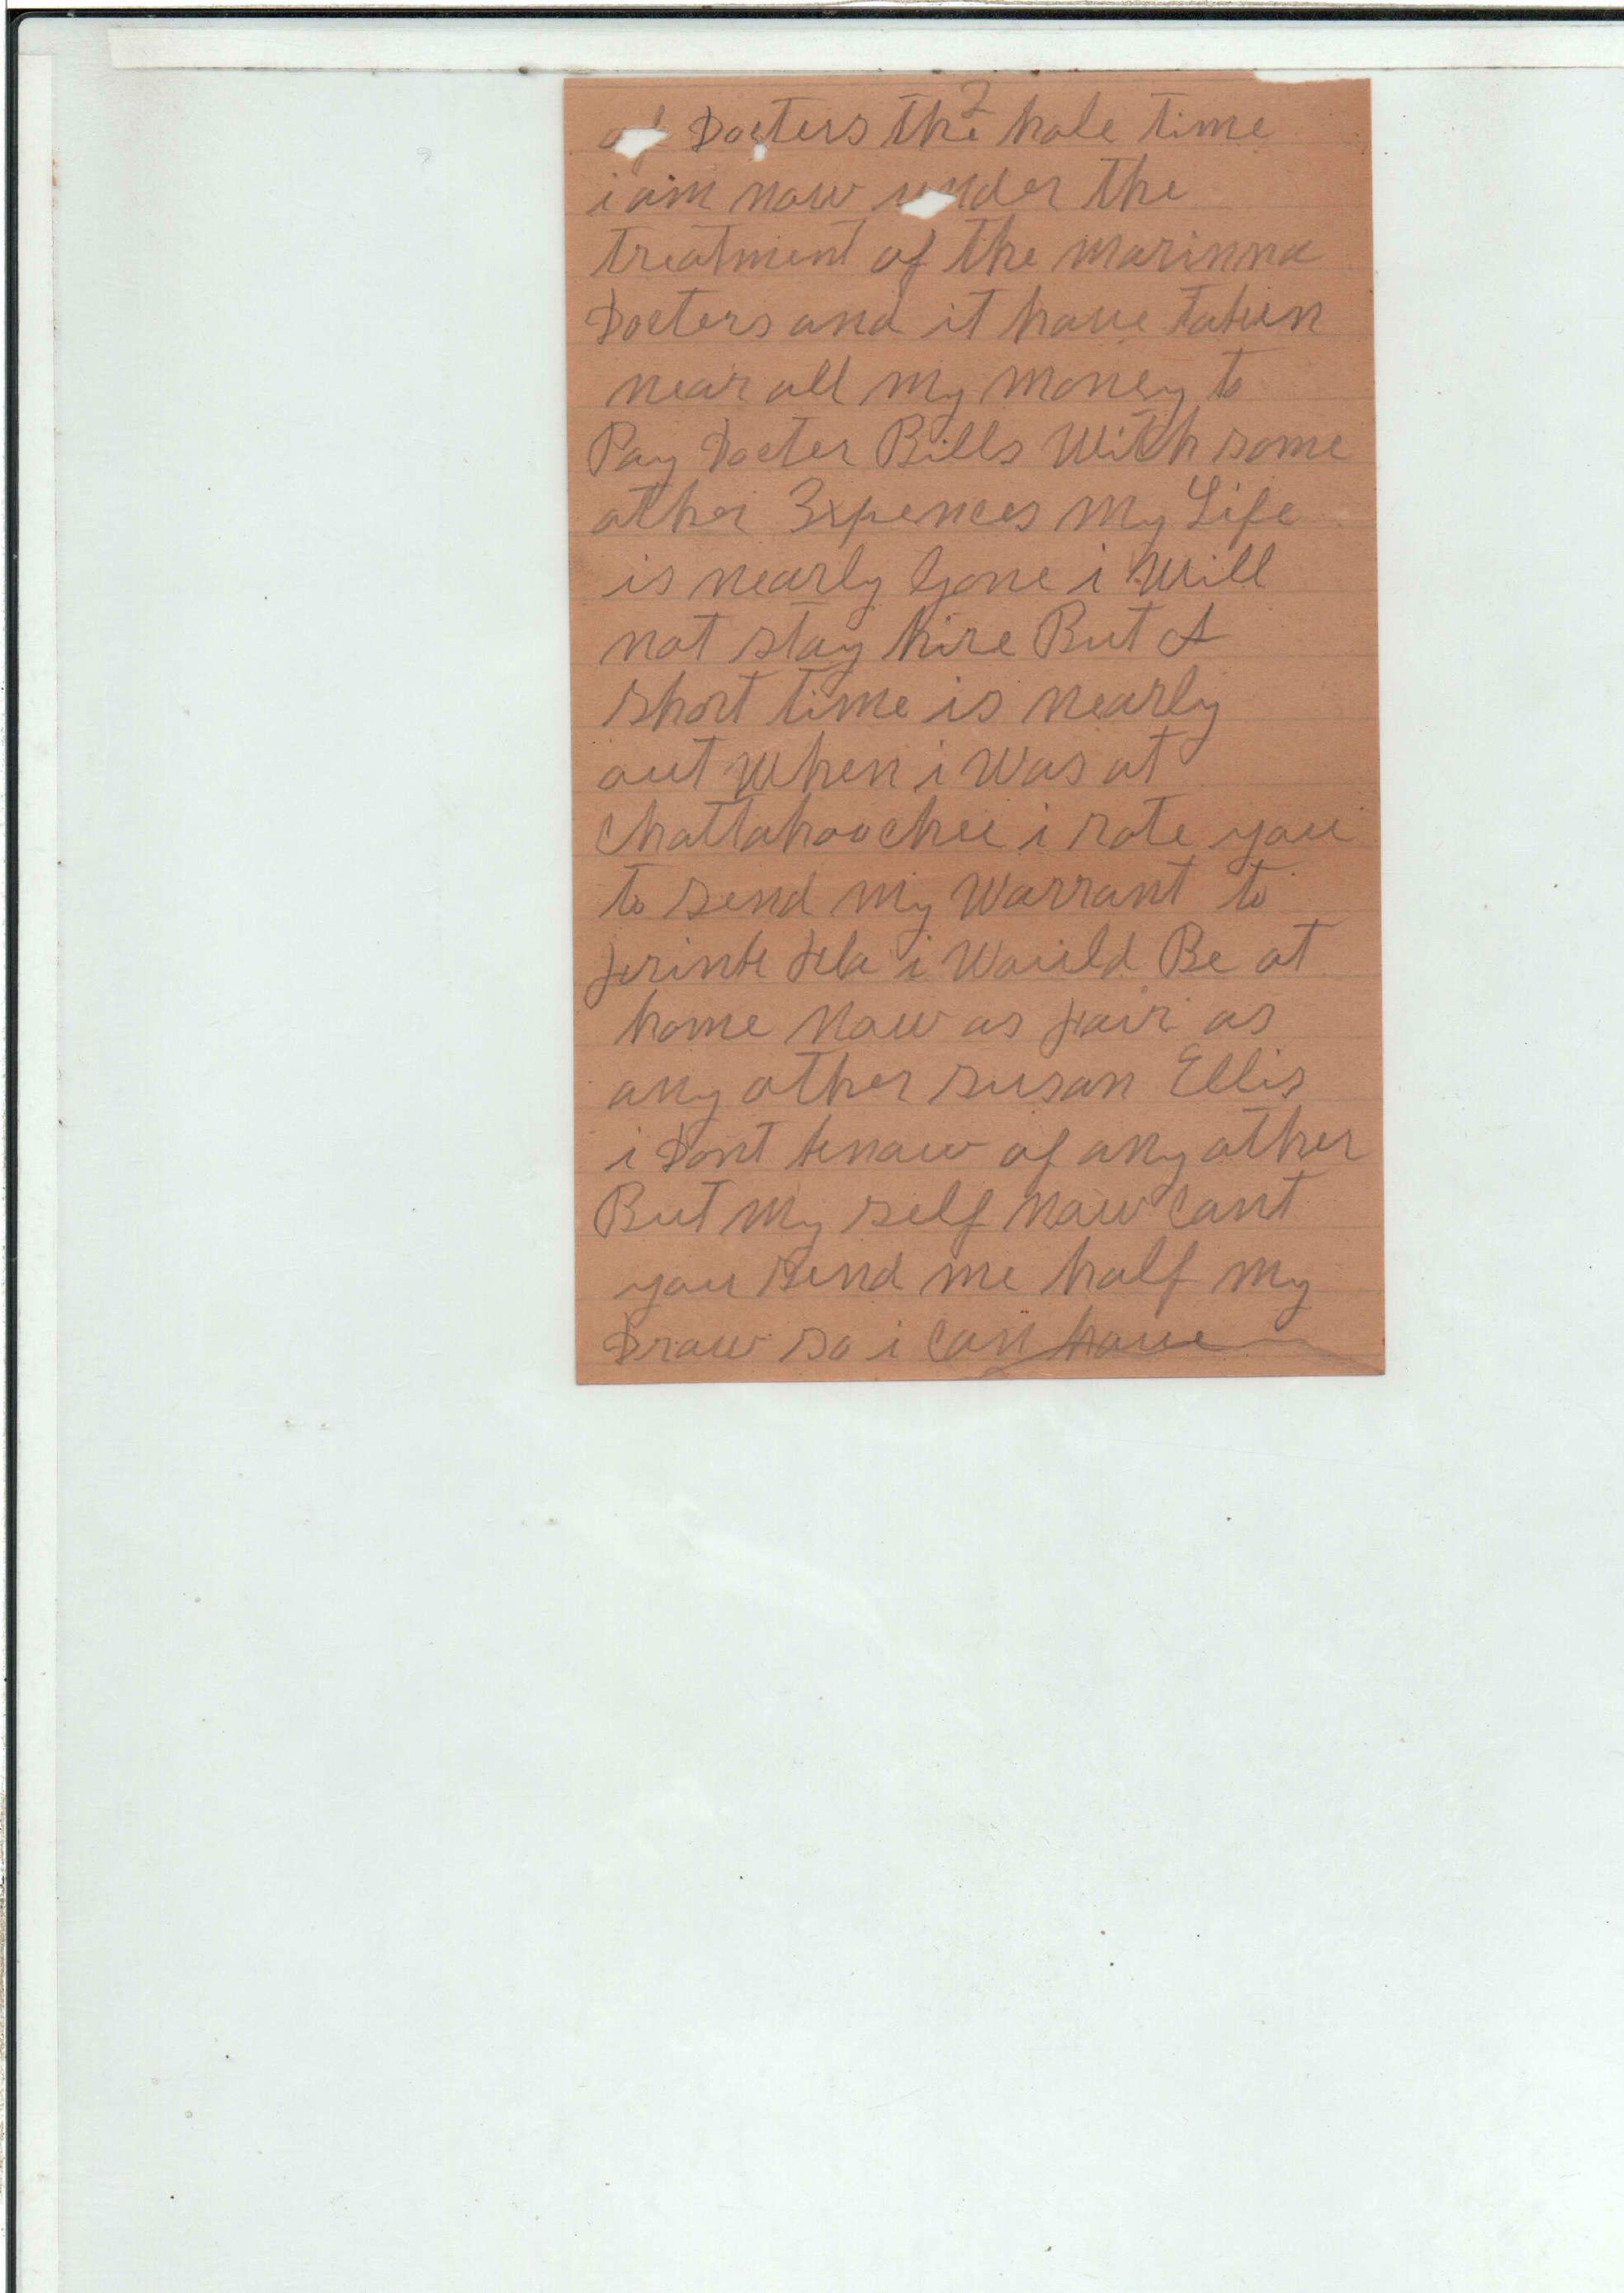 2
of Docters the hole time
i aim now under the
treatment of the marinna
Docters and it have taken
near all my money to
Pay Docter Bills With some
other Expences my Life
is nearly Gone i Will
not stay hire But A
short time is nearly
out When i Was at
Chattahoochee i rote you
to send my Warrant to
fla i Would Be at
home now as fair as
any other susan Ellis
i Dont know of any other
But my self now Cant
you send me half my
Draw so i Can have